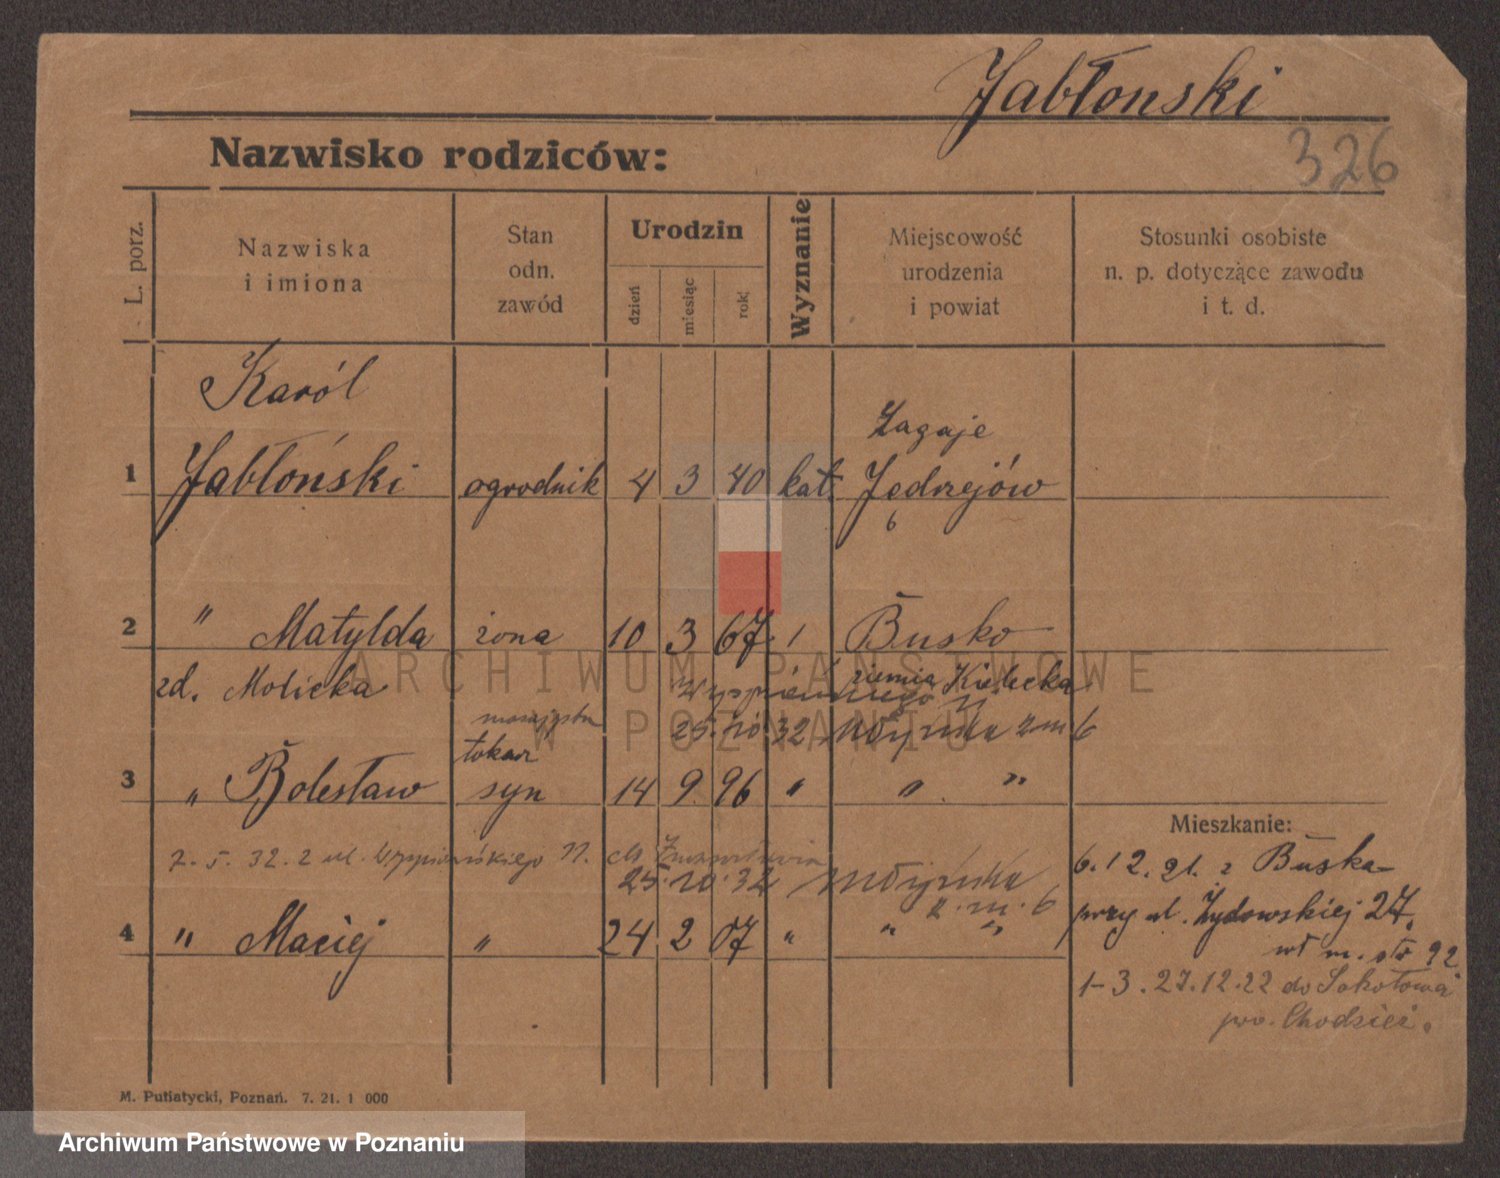 Jabłonski
326
Nazwisko rodziców:
L. porz.
Nazwiska
i imiona
Stan
odn.
zawód
Urodzin
dzień
miesiąc
rok
Wyznanie
Miejscowość
urodzenia
i powiat
Stosunki osobiste
n. p. dotyczące zawodu
i t. d.
Karól
Zagaje
1 Jabłoński ogrodnik 4 3 40 kat. Jędrzejów
6
2 " Matylda żona 10 3 67 Busko
zd. Molicka ziemia Kielecka
25. 10 32
tokarz
3 " Bolesław syn 14 9 96 " " "
Mieszkanie:
7. 5. 32. z ul. Wyspiańskiego 11.
25. 10. 32
6. 12. 21. z Buska
4 " Maciej " 24 2 07 " " "
przy ul. Żydowskiej 27.
1-3. 27. 12. 22 do Sokołowa
pow. Chodzież.
M. Putiatycki, Poznań. 7. 21. 1 000
ARCHIWUM PAŃSTWOWE
W POZNANIU
Archiwum Państwowe w Poznaniu